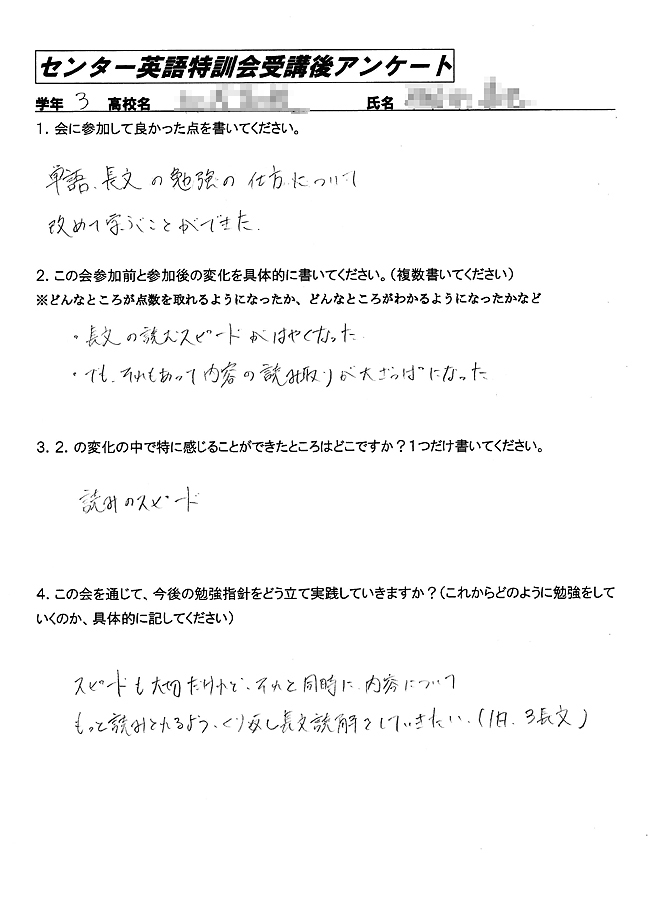 センター英語特訓会受講後アンケート
学年 3 高校名 氏名
1．会に参加して良かった点を書いてください。
単語、長文の勉強の仕方について
改めて学ぶことができた．
2．この会参加前と参加後の変化を具体的に書いてください。（複数書いてください）
※どんなところが点数を取れるようになったか、どんなところがわかるようになったかなど
・長文の読むスピードがはやくなった．
・でも、それもあって内容の読み取りが大ざっぱになった
3．2．の変化の中で特に感じることができたところはどこですか？1つだけ書いてください。
読みのスピード
4．この会を通じて、今後の勉強指針をどう立て実践していきますか？（これからどのように勉強をして
いくのか、具体的に記してください）
スピードも大切だけれど、それと同時に、内容について
もっと読みとれるよう、くり返し長文読解をしていきたい．（1日、3長文）